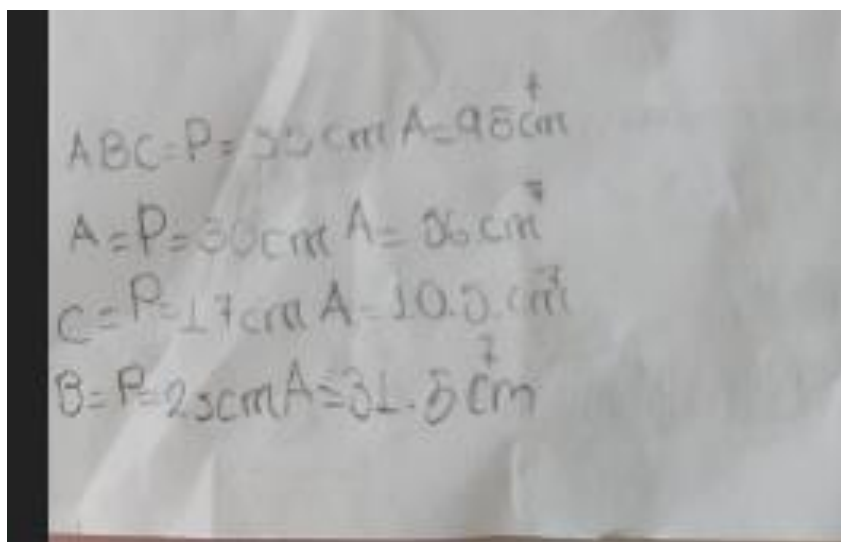 ABC=P=55cm A=98cm²
A=P=30cm A=56cm²
C=P=17cm A=10.5.cm²
B=P=25cm A=31.5cm²